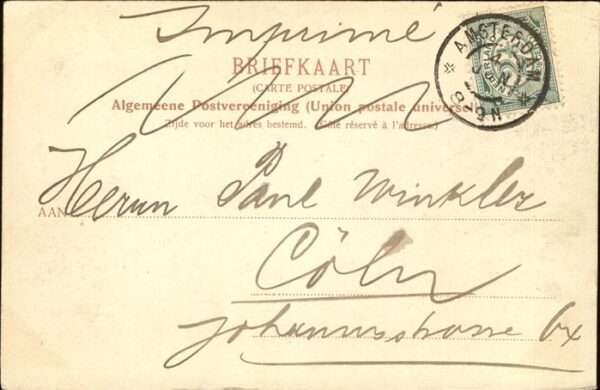 Imprimé
BRIEFKAART
(CARTE POSTALE)
Algemeene Postvereeniging (Union postale universelle)
Zijde voor het adres bestemd. (Côté réservé à l'adresse.)
AAN Herrn Paul Winkler
Cöln
Johannisstrasse
AMSTERDAM